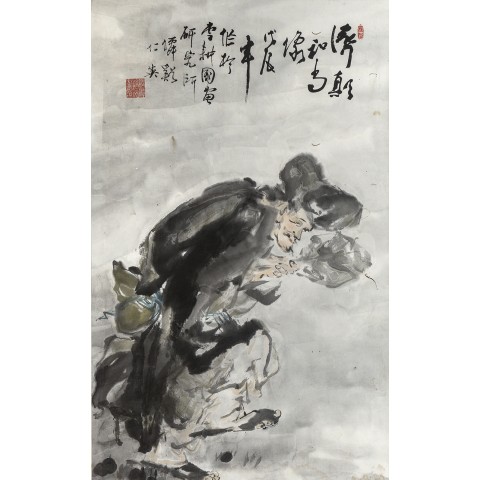 濟顛
和尚
像
戊辰
年
作於
李耕國畫
研究所
僊谿